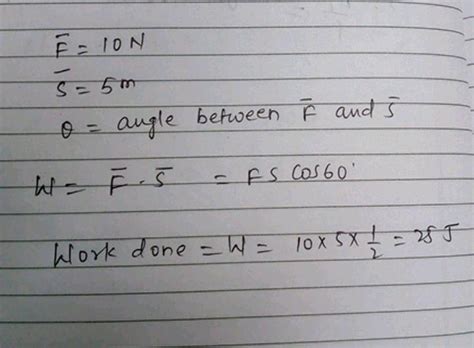 F̅ = 10 N
S̅ = 5 m
θ = angle between F̅ and S̅
W = F̅ . S̅ = F S COS 60°
Work done = W = 10 × 5 × 1/2 = 25 J